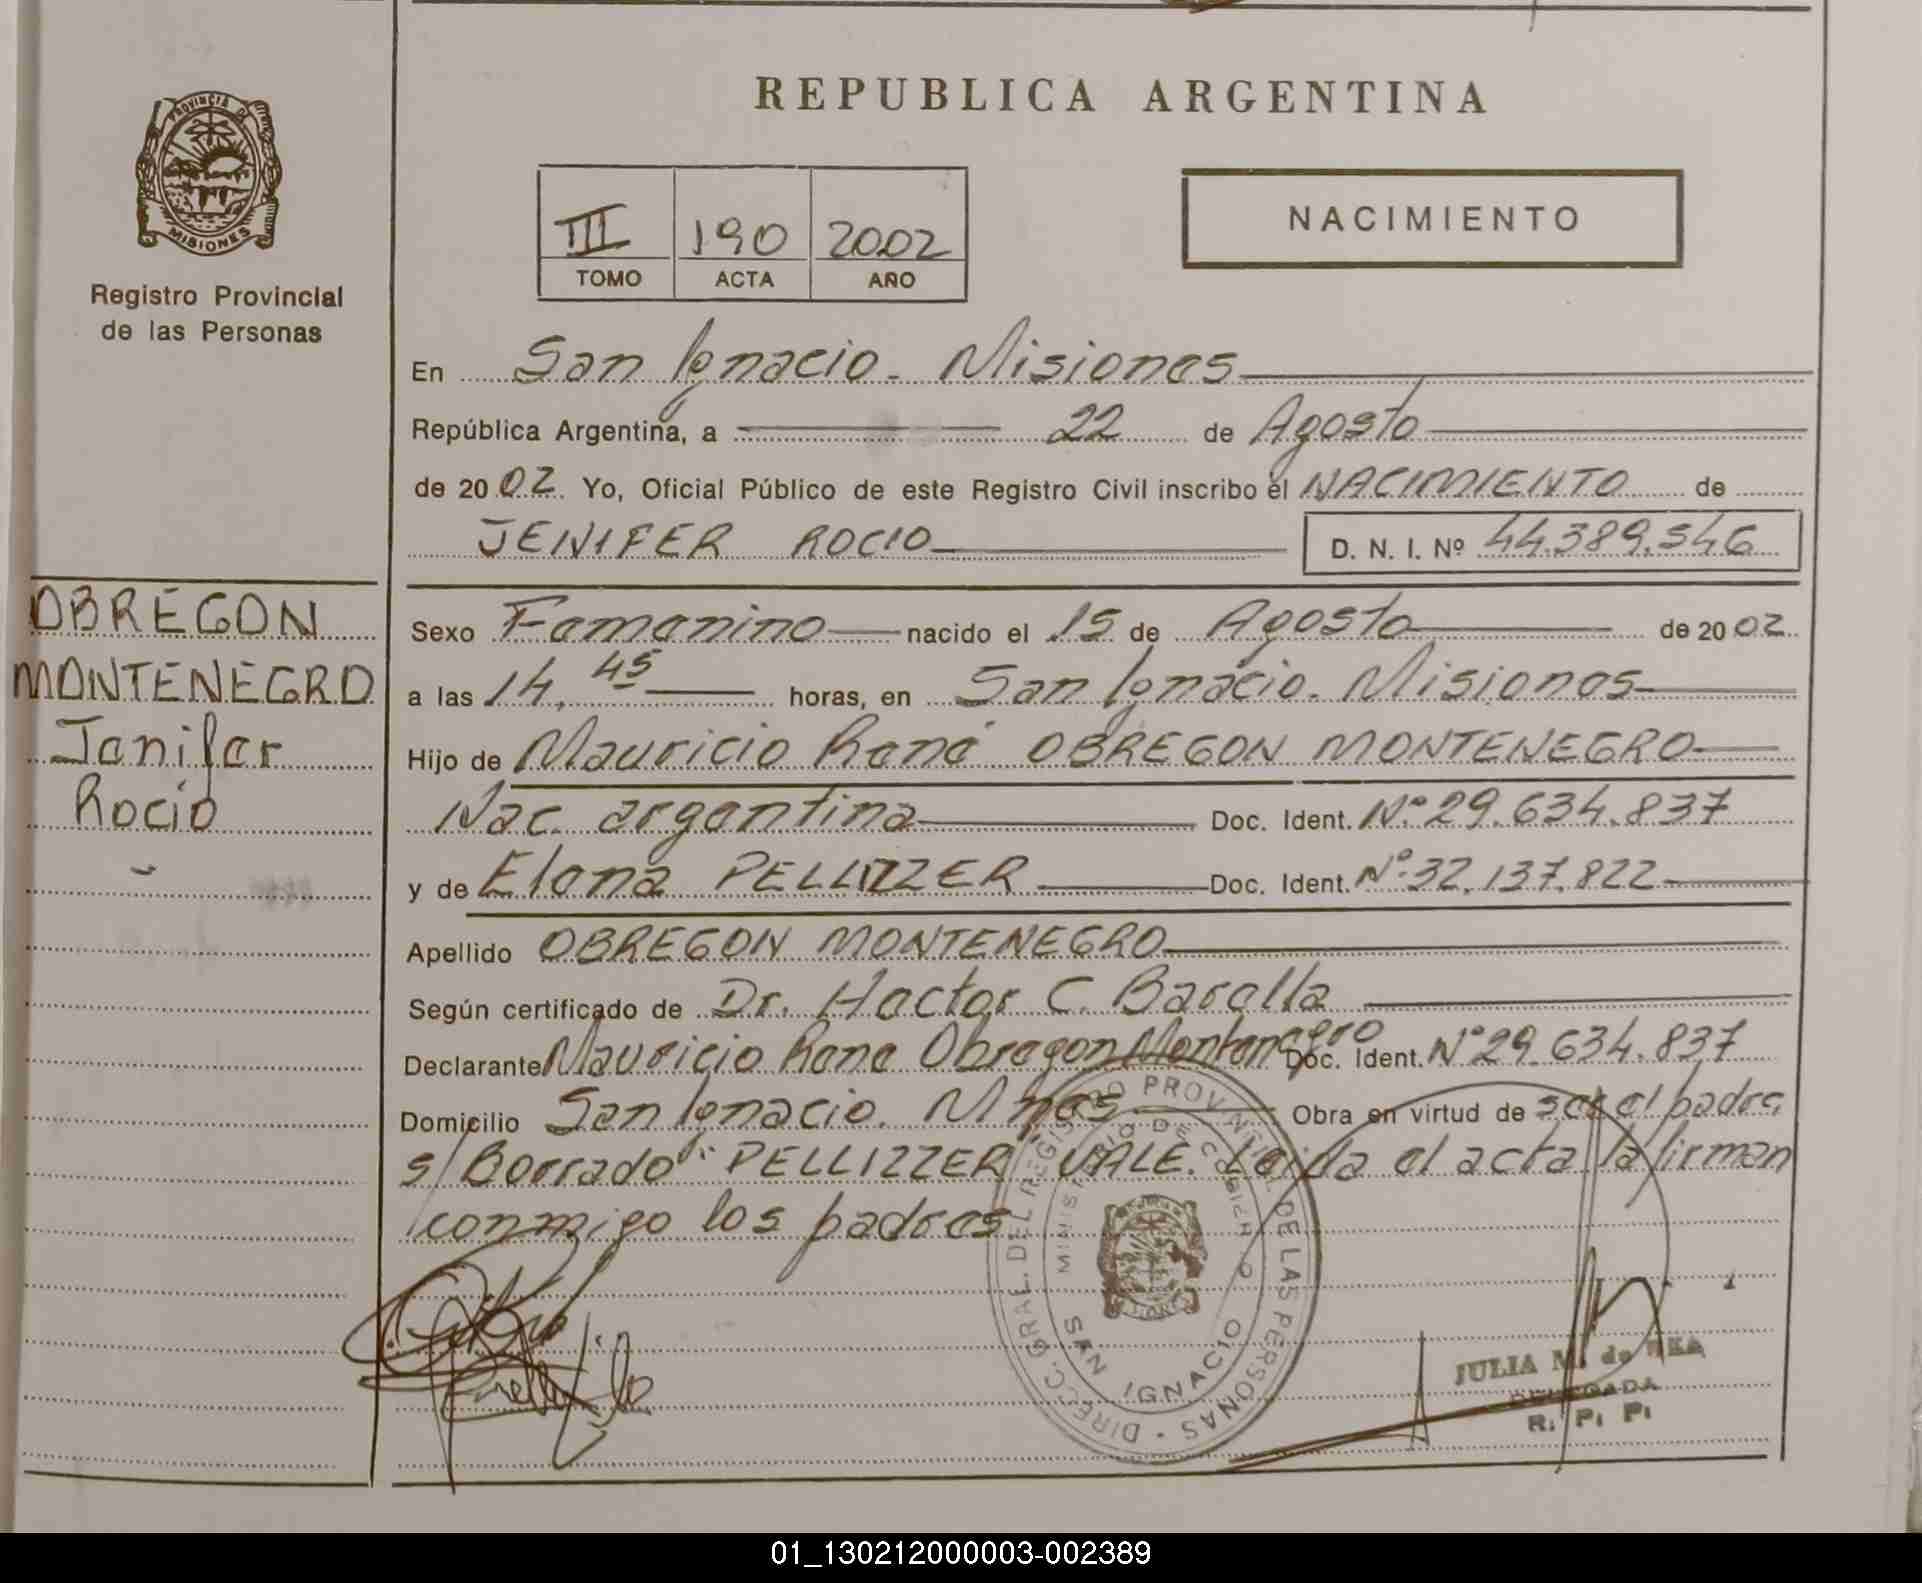 REPUBLICA ARGENTINA
PROVINCIA DE
MISIONES
Registro Provincial
de las Personas
III 190 2002
TOMO ACTA AÑO
NACIMIENTO
En San Ignacio - Misiones
República Argentina, a 22 de Agosto
de 2002. Yo, Oficial Público de este Registro Civil inscribo el NACIMIENTO de
JENIFER ROCIO D. N. I. Nº 44.389.546
OBREGON
MONTENEGRO
Jenifer
Rocio
Sexo Femenino nacido el 15 de Agosto de 2002
a las 14,45 horas, en San Ignacio. Misiones
Hijo de Mauricio René OBREGON MONTENEGRO
Nac. argentina Doc. Ident. Nº 29.634.837
y de Elena PELLIZZER Doc. Ident. Nº 32.137.822
Apellido OBREGON MONTENEGRO
Según certificado de Dr. Hector C. Barella
Declarante Mauricio Rene Obregon Montenegro Doc. Ident. Nº 29.634.837
Domicilio San Ignacio. Mnes Obra en virtud de ser el padre
s/Borrado "PELLIZZER" VALE. Leida el acta la firman
conmigo los padres
DIRECC. GRAL. DEL REGISTRO PROVINCIAL DE LAS PERSONAS
MINISTERIO DE GOBIERNO
SAN IGNACIO
JULIA M. de
DELEGADA
R. P. P.
01_130212000003-002389